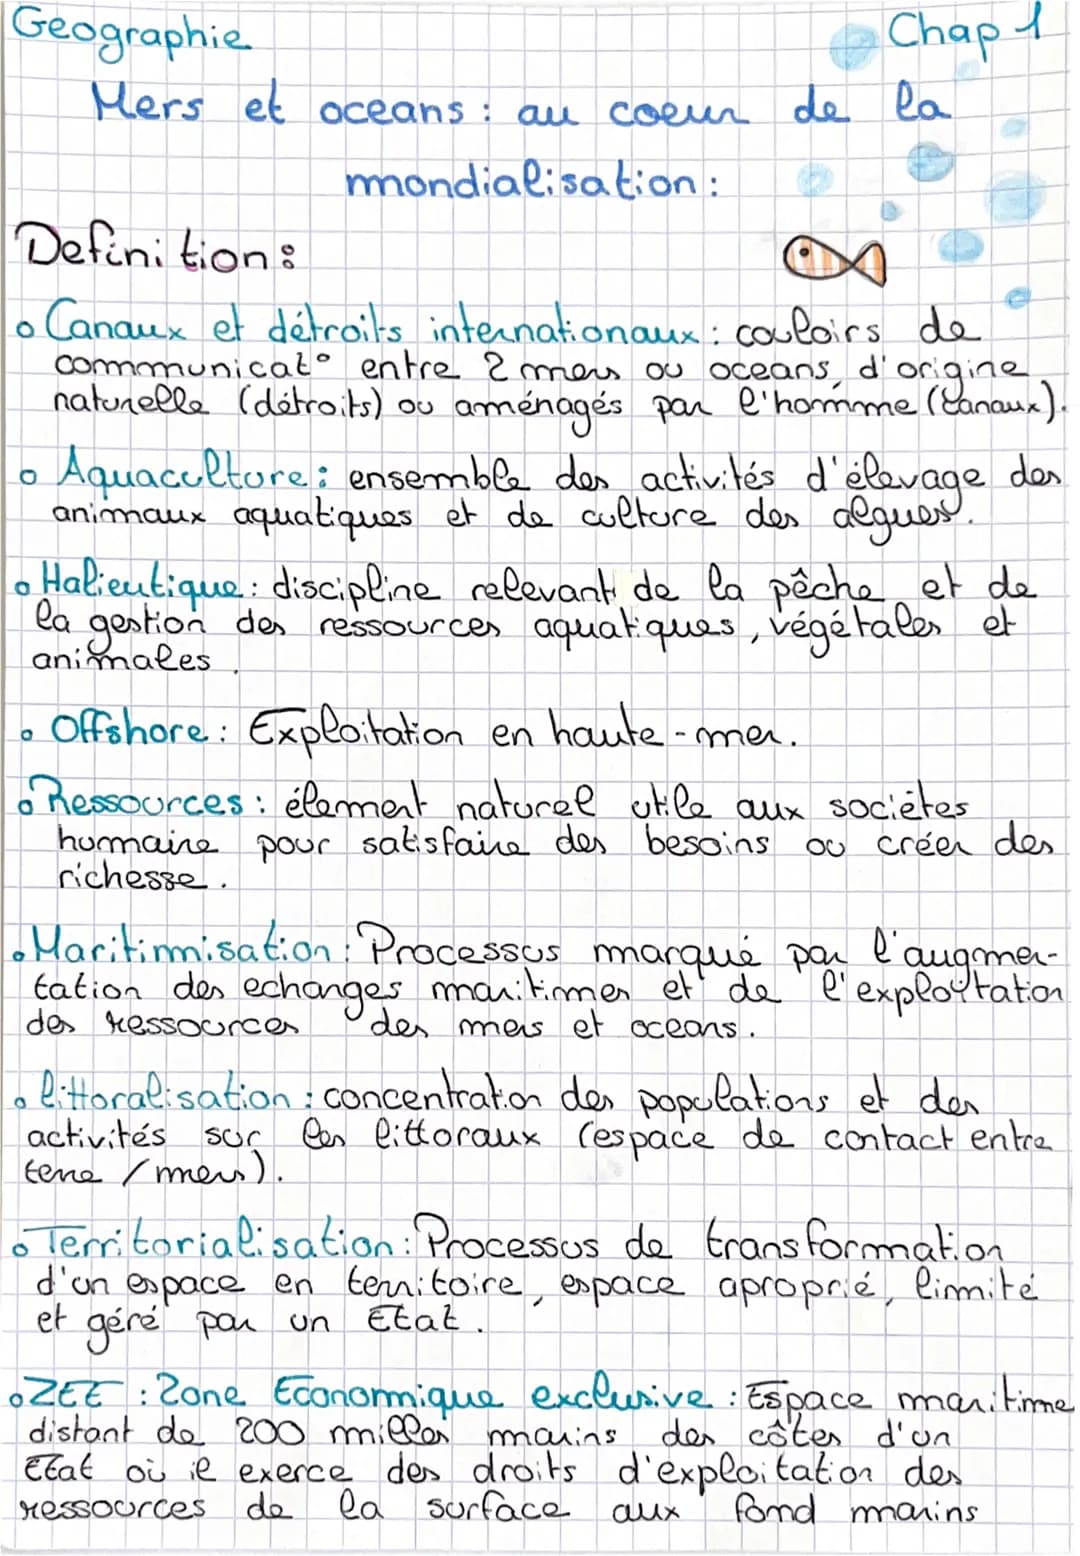 Geographie Chap 1
Mers et oceans : au coeur de la
mondialisation :
Definition :
Canaux et détroits internationaux : couloirs de
communicat° entre 2 mers ou oceans, d'origine
naturelle (détroits) ou aménagés par l'homme (canaux).
Aquaculture : ensemble des activités d'élevage des
animaux aquatiques et de culture des algues.
Halieutique : discipline relevant de la pêche et de
la gestion des ressources aquatiques, végétales et
animales.
Offshore : Exploitation en haute-mer.
Ressources : élement naturel utile aux sociétes
humaine pour satisfaire des besoins ou créer des
richesse.
Maritimisation : Processus marqué par l'augmen-
tation des echanges maritimes et de l'exploytation
des ressources des mers et oceans.
littoralisation : concentration des populations et des
activités sur les littoraux (espace de contact entre
terre / mers).
Territorialisation : Processus de transformation
d'un espace en territoire, espace aproprié, limité
et géré par un Etat.
ZEE : Zone Economique exclusive : Espace maritime
distant de 200 milles marins des côtes d'un
Etat où il exerce des droits d'exploitation des
ressources de la surface aux fond marins